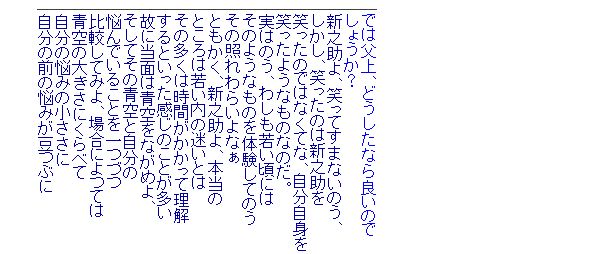 では父上、どうしたなら良いので
しょうか？
新之助よ、笑ってすまないのう、
しかし、笑ったのは新之助を
笑ったのではなくてな、自分自身を
笑ったようなものなのだ。
実はのう、わしも若い頃には
そのようなものを体験してのう
その照れわらいよなぁ
ともかく、新之助よ、本当の
ところは若い内の迷いとは
その多くは時間がかかって理解
するといった感じのことが多い
故に当面は青空をながめよ、
そしてその青空と自分の
悩んでいることを一つづつ
比較してみよ、場合によっては
青空の大きさにくらべて
自分の悩みの小ささに
自分の前の悩みが豆つぶに